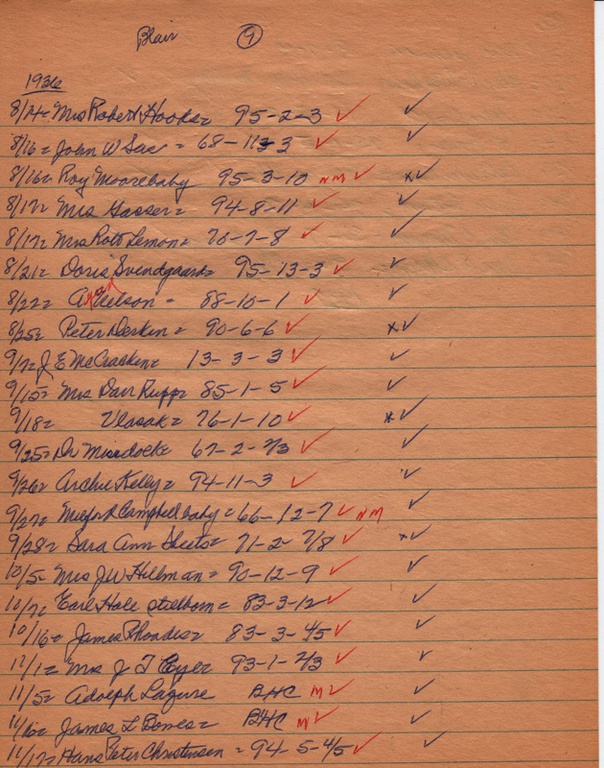 Blair 9
1936
8/14= Mrs Robert Hooks= 95-2-3 ✓ ✓
8/16= John W = 68-11 3 ✓ ✓
8/16= Roy Moore baby 95-3-10 NM ✓ x✓
8/17= Mrs Gasser= 94-8-11 ✓ ✓
8/17= Mrs Robt Lemon= 70-7-8 ✓ ✓
8/21= Doris Svendgaard= 95-13-3 ✓ ✓
8/22= = 88-10-1 ✓ ✓
8/25= Peter Derkin= 90-6-6 ✓ x✓
9/7= J E McCracken= 13-3-3 ✓ ✓
9/15= Mrs Dan Rupp= 85-1-5 ✓ ✓
9/18= Vlasak= 76-1-10 ✓ x✓
9/25= Dr Murdock= 67-2-2/3 ✓ ✓
9/26= Archie Kelly= 94-11-3 ✓ ✓
9/27= Campbell baby= 66-12-7 ✓ NM ✓
9/28= Sara Ann Sheets= 71-2 7/8 ✓ x✓
10/5= Mrs J W Hillman= 90-12-9 ✓ ✓
10/7= Earl Hale stilborn= 83-3-12 ✓ ✓
10/16= James Rhoades= 83-3-4/5 ✓ ✓
12/1= Mrs J T Eyer 93-1-2/3 ✓ ✓
11/5= Adolph BHC M ✓ ✓
James L Bones= BHC M ✓ ✓
11/17= Hans Peter Christensen= 94-5-4/5 ✓ ✓